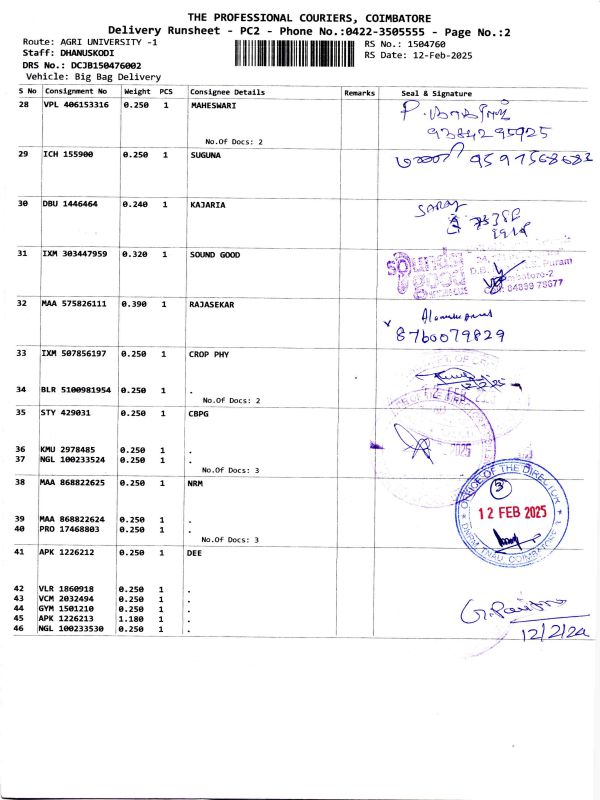 THE PROFESSIONAL COURIERS, COIMBATORE
Delivery Runsheet - PC2 - Phone No.:0422-3505555 - Page No.:2
Route: AGRI UNIVERSITY -1
RS No.: 1504760
Staff: DHANUSKODI
RS Date: 12-Feb-2025
DRS No.: DCJB150476002
Vehicle: Big Bag Delivery
S No Consignment No Weight PCS Consignee Details Remarks Seal & Signature
28 VPL 406153316 0.250 1 MAHESWARI
No.Of Docs: 2
9384295925
29 ICH 155900 0.250 1 SUGUNA
9597568683
30 DBU 1446464 0.240 1 KAJARIA
SARAJ
31 IXM 303447959 0.320 1 SOUND GOOD
32 MAA 575826111 0.390 1 RAJASEKAR
8760079829
33 IXM 507856197 0.250 1 CROP PHY
34 BLR 5100981954 0.250 1 .
No.Of Docs: 2
35 STY 429031 0.250 1 CBPG
36 KMU 2978485 0.250 1 .
37 NGL 100233524 0.250 1 .
No.Of Docs: 3
38 MAA 868822625 0.250 1 NRM
OFFICE OF THE DIRECTOR
3
12 FEB 2025
TNAU COIMBATORE
39 MAA 868822624 0.250 1 .
40 PRO 17468803 0.250 1 .
No.Of Docs: 3
41 APK 1226212 0.250 1 DEE
42 VLR 1860918 0.250 1 .
43 VCM 2032494 0.250 1 .
44 GYM 1501210 0.250 1 .
45 APK 1226213 1.180 1 .
46 NGL 100233530 0.250 1 .
12/2/20